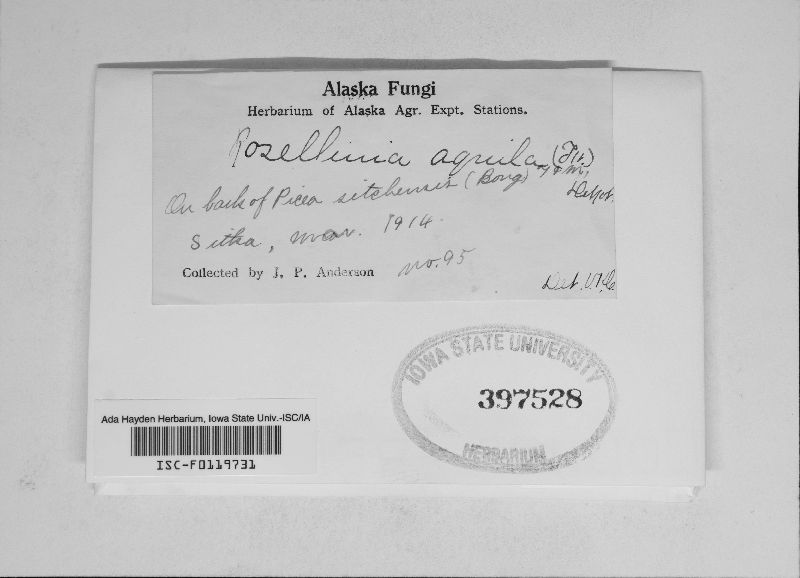 Alaska Fungi
Herbarium of Alaska Agr. Expt. Stations.
Rosellinia aquila (Fr.)
On bark of Picea sitchensis (Bong) T & M,
Sitka, Mar. 1914.
Collected by J. P. Anderson no. 95
Det.
IOWA STATE UNIVERSITY
397528
HERBARIUM
Ada Hayden Herbarium, Iowa State Univ.-ISC/IA
ISC-F0119731